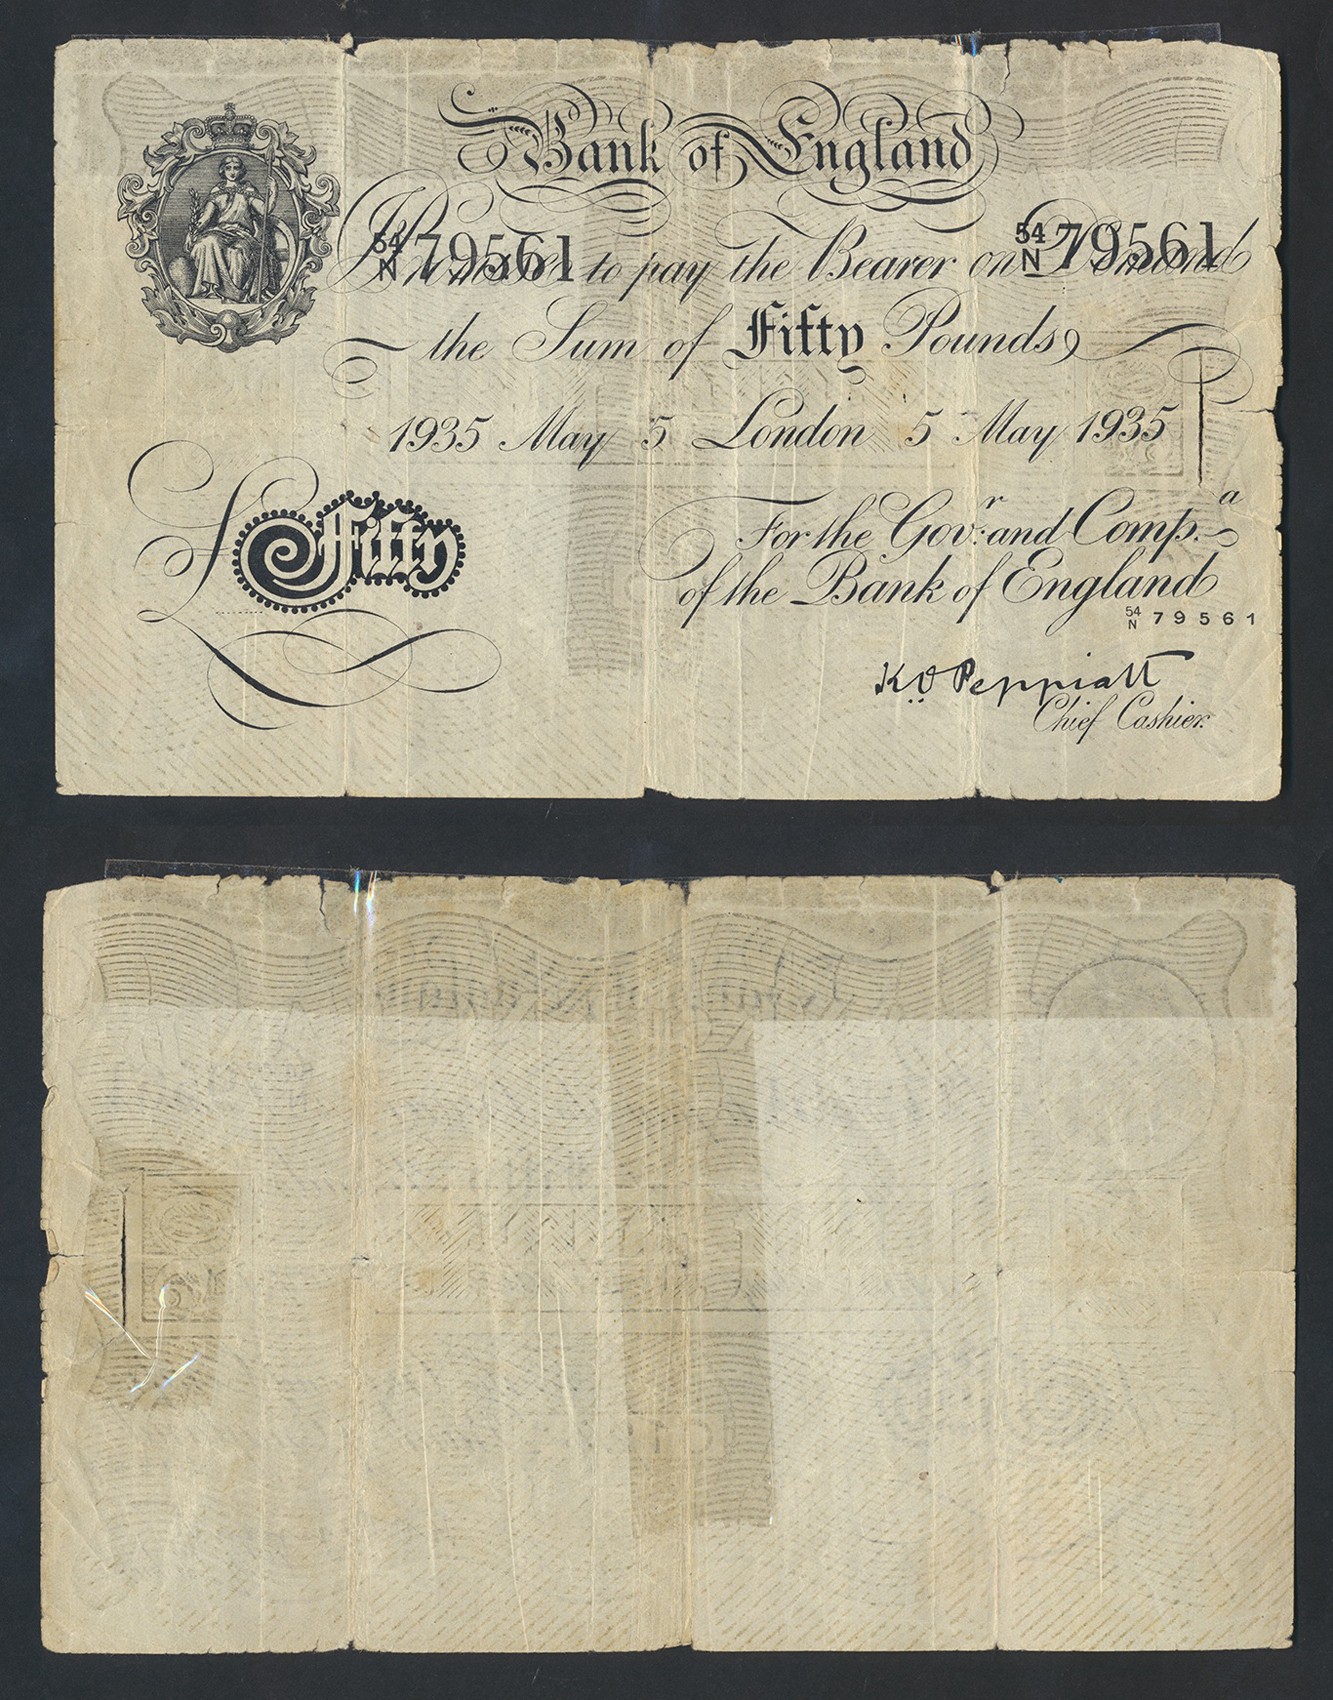 Bank of England
54 N 79561 54 N 79561
I Promise to pay the Bearer on Demand
the Sum of Fifty Pounds
1935 May 5 London 5 May 1935
For the Gov.r and Comp.a
£ Fifty
of the Bank of England
54 N 79561
K.O. Peppiatt
Chief Cashier.